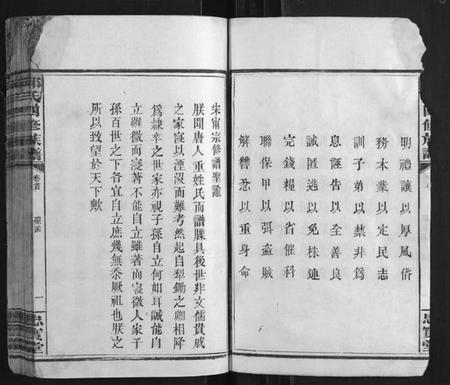 明禮讓以厚風俗
務本業以定民志
訓子弟以禁非爲
息誣告以全善良
誡匿逃以免株連
完錢糧以省催科
聯保甲以弭盜賊
解讐忿以重身命
宋甯宗修譜聖諭
朕聞唐人重姓氏而譜牒具後世非文儒貴戚
之家寖以湮沒而難考然起自犁鋤之
相降
爲隸
之世家亦視子孫自立何如耳誠能自
立雖微而寖著不能自立雖著而寖微人家子
孫百世之下各宜自立庶幾無忝厥祖也朕之
所以致望於天下歟
氏四修族譜
卷首
聖諭
一
忠實堂